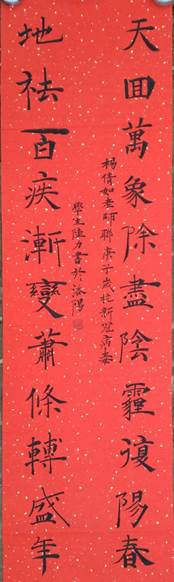 天回萬象除盡陰霾復陽春
楊倩如老師聯庚子歲抗新冠病毒
地祛百疾漸變蕭條轉盛年
學生陸力書於洛陽